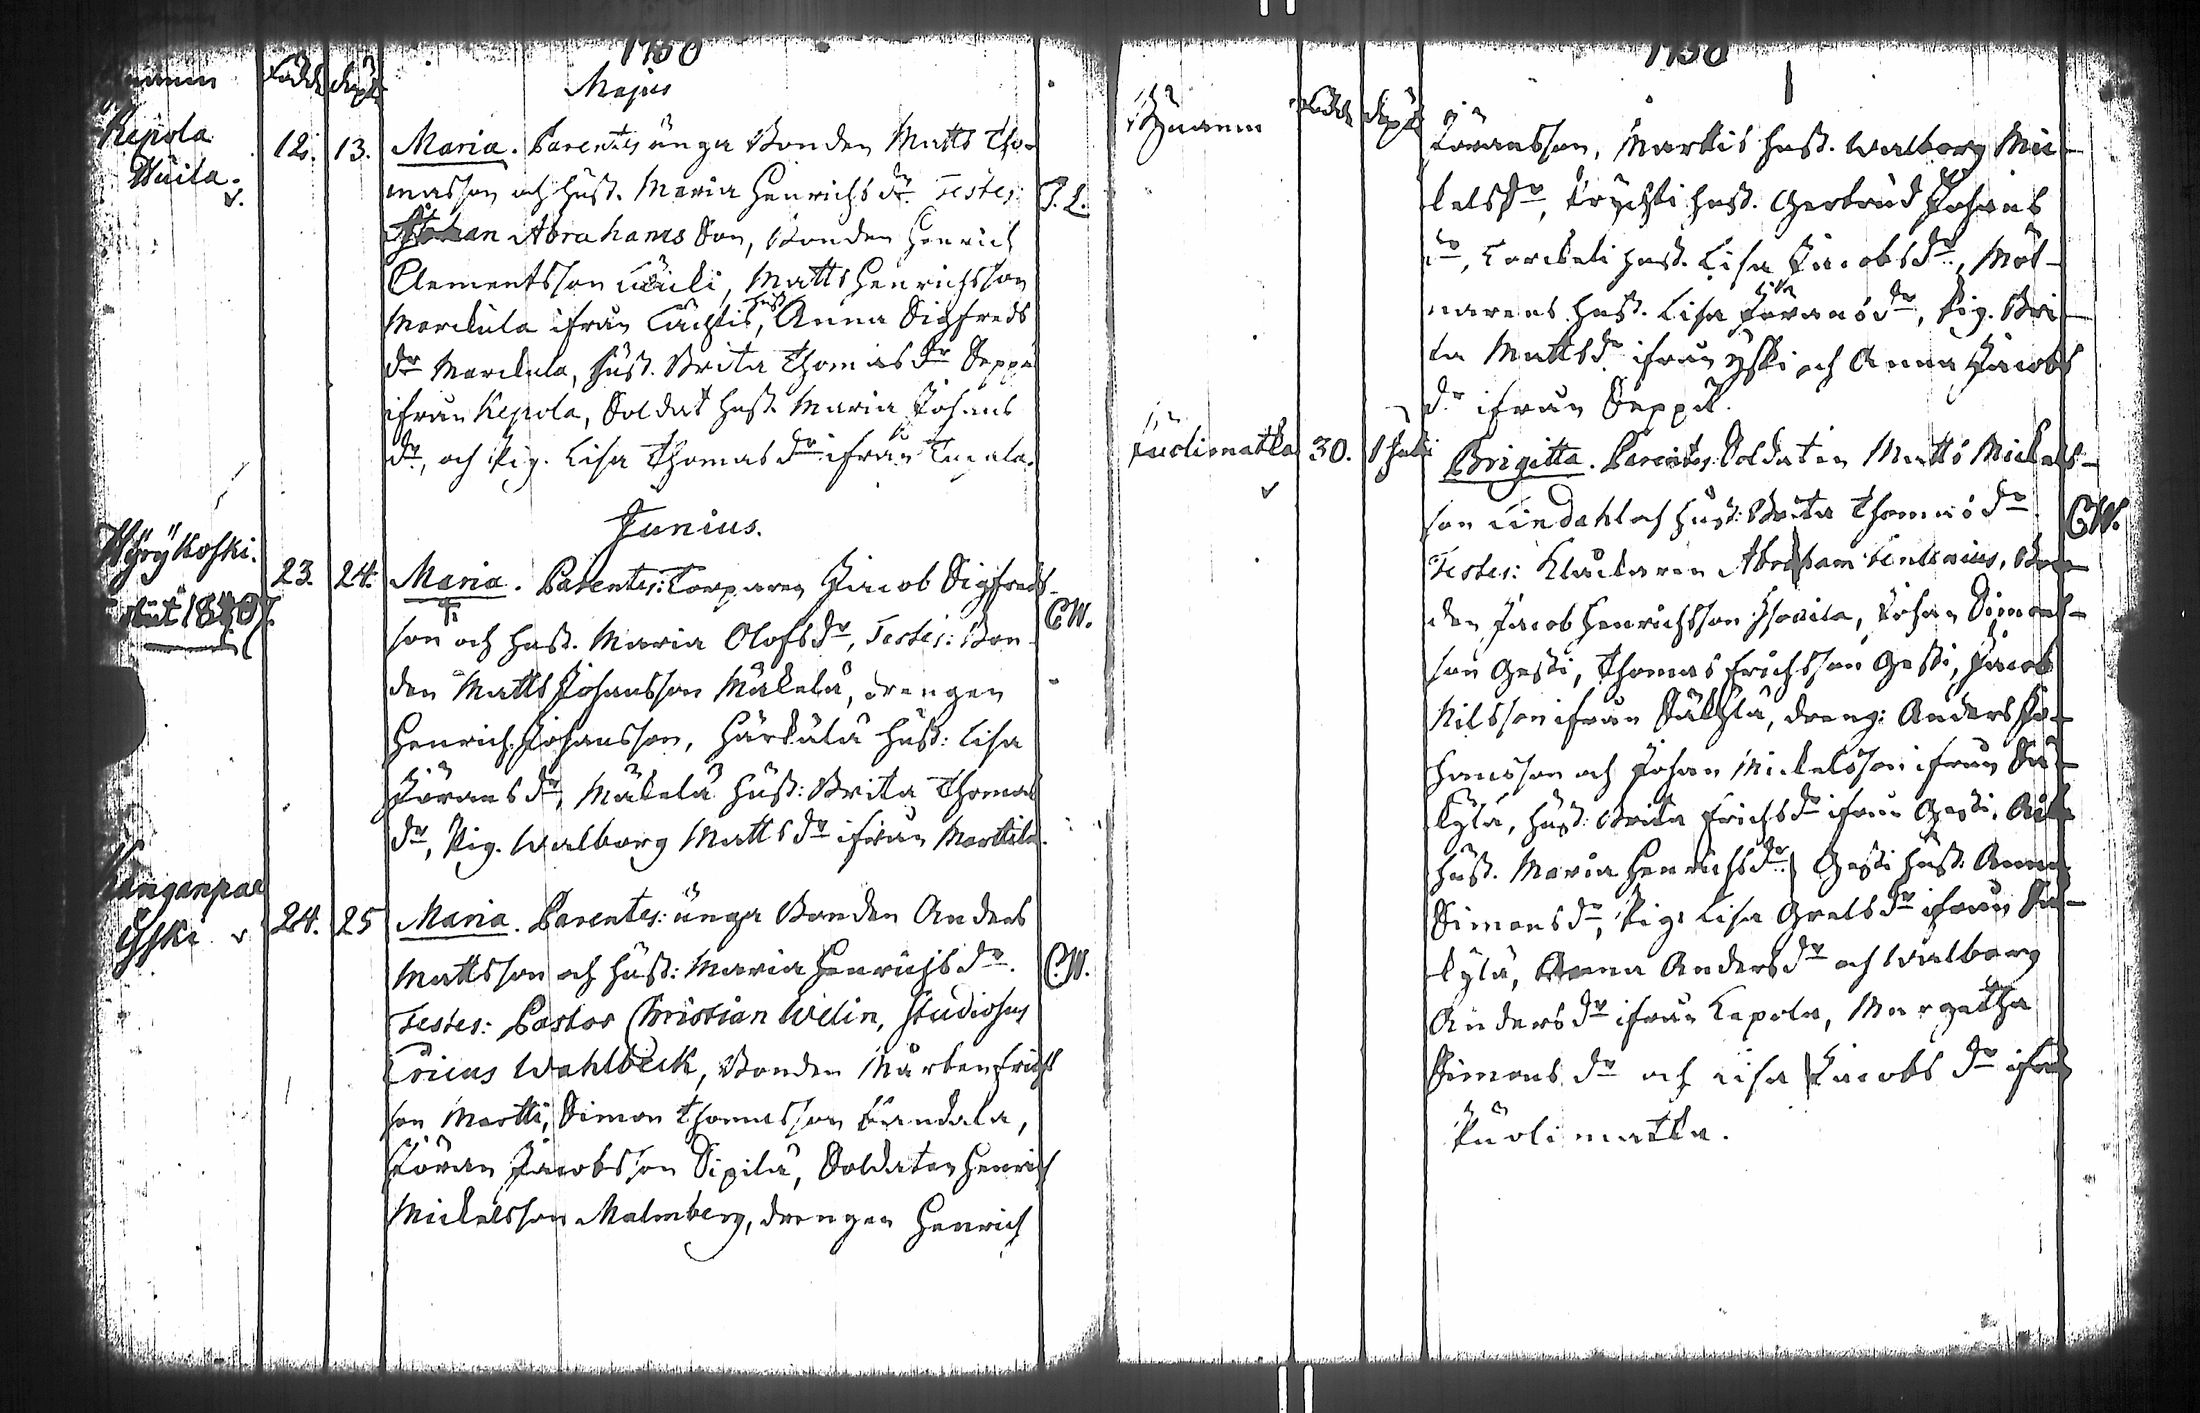 1750
Majus
Födde döpte
Kepola
Wuila.
12. 13. Maria. Parentes unga Bonden Matts Tho-
masson och Hust. Maria Henrichsdr. Testes: J. L.
Johan Abrahams Son, Bonden Henrich
Clementsson, Matts Henrichsson
Marckula ifrån, hust. Anna Sigfreds
dr Marckula, Hust. Brita Thomasdr Seppä
ifrån Kepola, Soldat Hust. Maria Johans
dr, och Pig. Lisa Thomasdr ifrån
Junius.
Hyrykoski.
23. 24. Maria. Parentes: Torparen Jacob Sigfreds-
son och Hust. Maria Olofsdr, Testes: Bon- C.W.
den Matts Johansson Mäkelä, drengen
Henrich Johansson, Härkälä Hust: Lisa
Jöransdr, Mäkelä Hust: Brita Thomas
dr, Pig. Walborg Mattsdr ifrån Marttila.
Kanganpää
Yski
24. 25 Maria. Parentes: unga Bonden Anders
Mattsson och Hust: Maria Henrichsdr. C.W.
Testes: Pastor Christian Welin, Studiosus
Ericus Wahlbeck, Bonden Mårten Erichs
son Martti, Simon Thomasson,
Jöran Jacobsson Sipilä, Soldaten Henrich
Mickelsson Malmberg, drengen Henrich
1750
Bynamn Födde döpte
Jöransson, Markis hust. Walborg Mic-
kelsdr, hust. Gertrud Johans
dr, hust. Lisa Jacobsdr, Möl-
narens hust. Lisa Jöransdr, Pig. Bri-
ta Mattsdr ifrån Yski och Anna Jacobs
dr ifrån Seppä.
Puolimatka 30. 1 Juli Brigitta. Parentes: Soldaten Matts Mickels-
son Lindahl och Hust: Brita Thomasdr C.W.
Testes: Klåckaren Abraham, Bon-
den Jacob Henrichsson, Johan Simons-
son Gesti, Thomas Erichsson Gesti, Jacob
Nilsson ifrån, dreng: Anders Jo-
hansson och Johan Mickelsson ifrån Sä-
kylä, Hust: Brita Erichsdr ifrån Gesti,
Hust. Maria Henrichsdr Gesti Hust. Anna
Simonsdr, Pig: Lisa Grelsdr ifrån Sä-
kylä, Anna Andersdr och Walborg
Andersdr ifrån Kepola, Margetha
Simonsdr och Lisa Jacobsdr ifrån
Puolimatka.